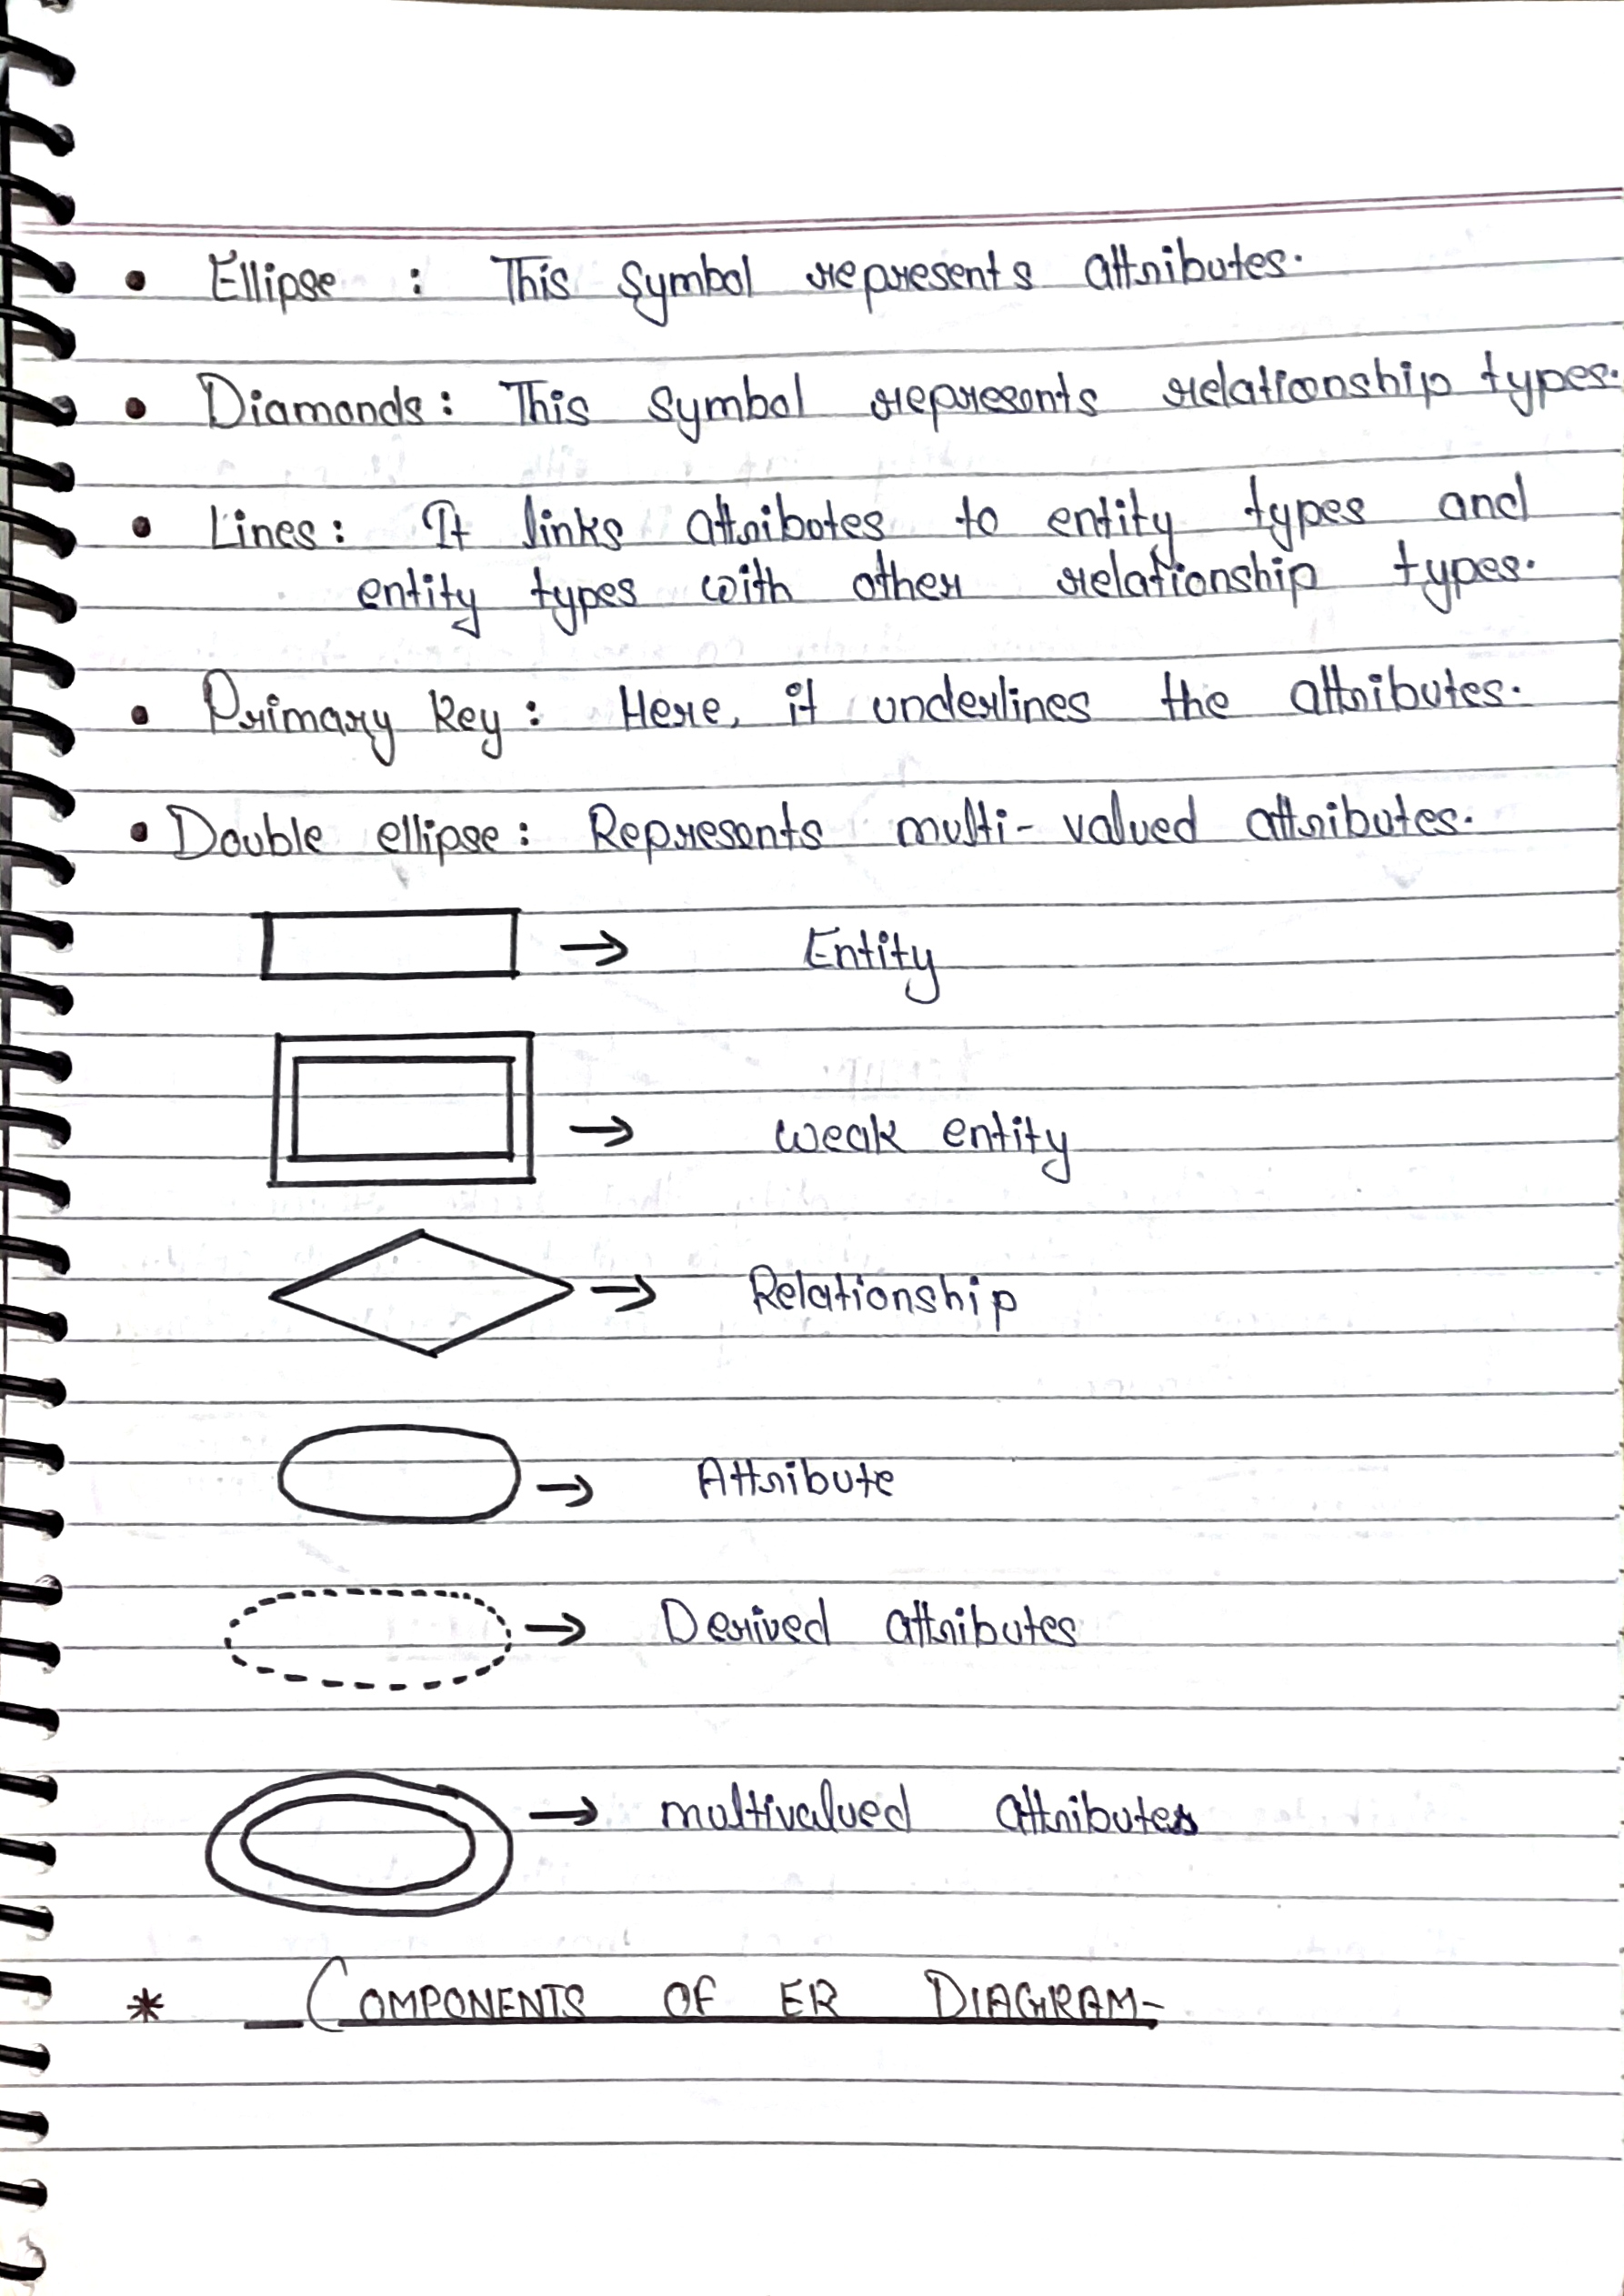 • Ellipse : This symbol represents attributes.
• Diamonds: This symbol represents relationship types.
• Lines: It links attributes to entity types and
entity types with other relationship types.
• Primary key: Here, it underlines the attributes.
• Double ellipse: Represents multi-valued attributes.
→ Entity
→ weak entity
→ Relationship
→ Attribute
→ Derived attributes
→ multivalued attributes
* COMPONENTS OF ER DIAGRAM-